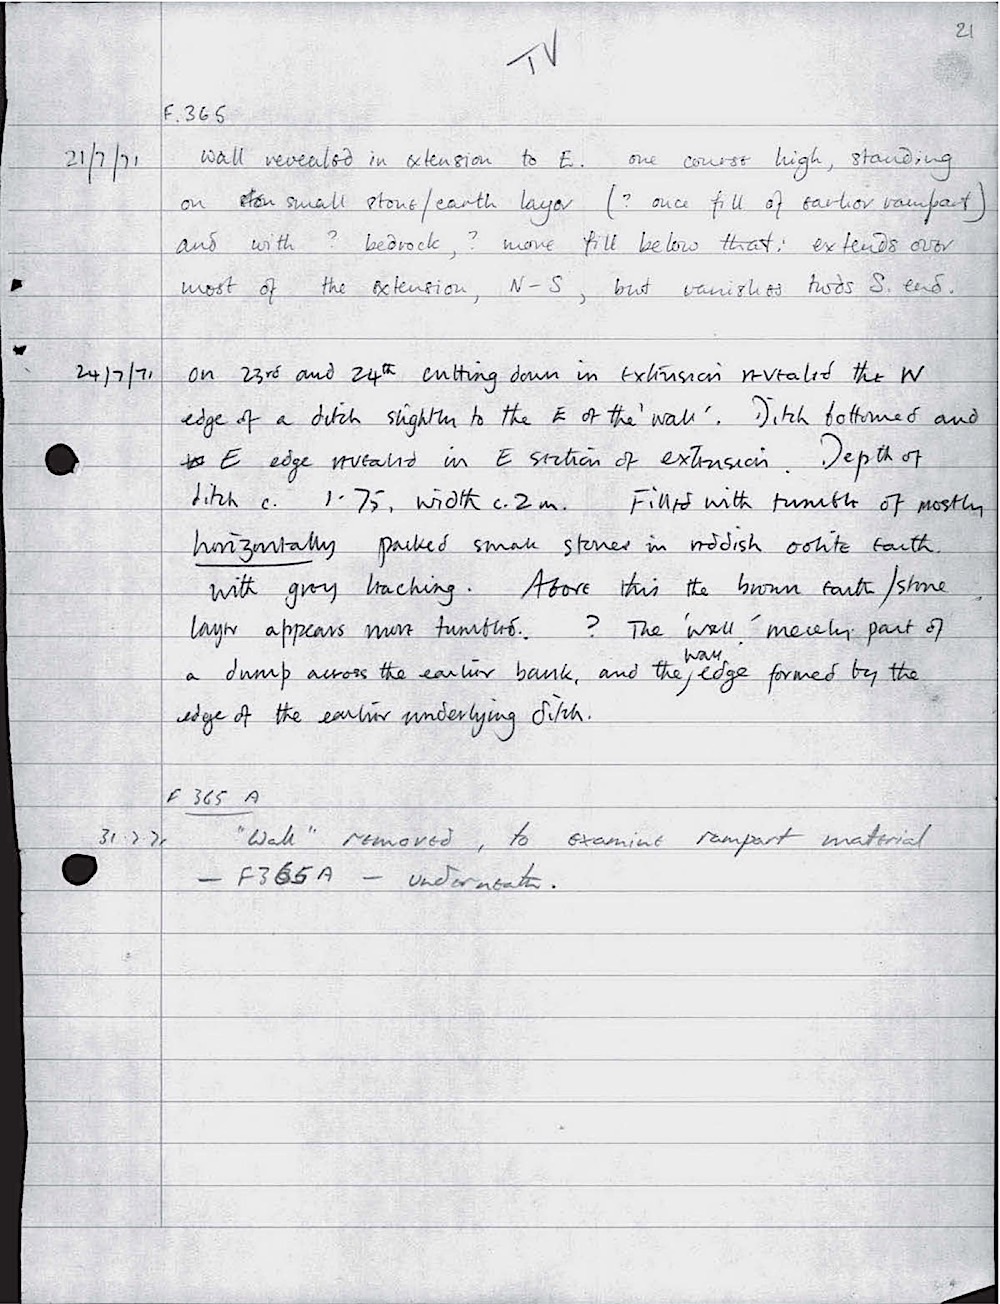 21
TV
F.365
21/7/71 Wall revealed in extension to E. one course high, standing
on small stone/earth layer (? once fill of earlier rampart)
and with ? bedrock, ? more fill below that: extends over
most of the extension, N-S, but vanishes twds S. end.
24/7/71 On 23rd and 24th cutting down in extension revealed the W
edge of a ditch slightly to the E of the 'wall'. Ditch bottomed and
E edge revealed in E section of extension. Depth of
ditch c. 1.75, width c. 2 m. Filled with tumble of mostly
horizontally packed small stones in reddish oolite earth.
with grey leaching. Above this the brown earth/stone
layer appears more tumbled. ? The 'wall' merely part of
a dump across the earlier bank, and the wall edge formed by the
edge of the earlier underlying ditch.
F 365 A
31.7.71 "Wall" removed, to examine rampart material
— F365A — underneath.